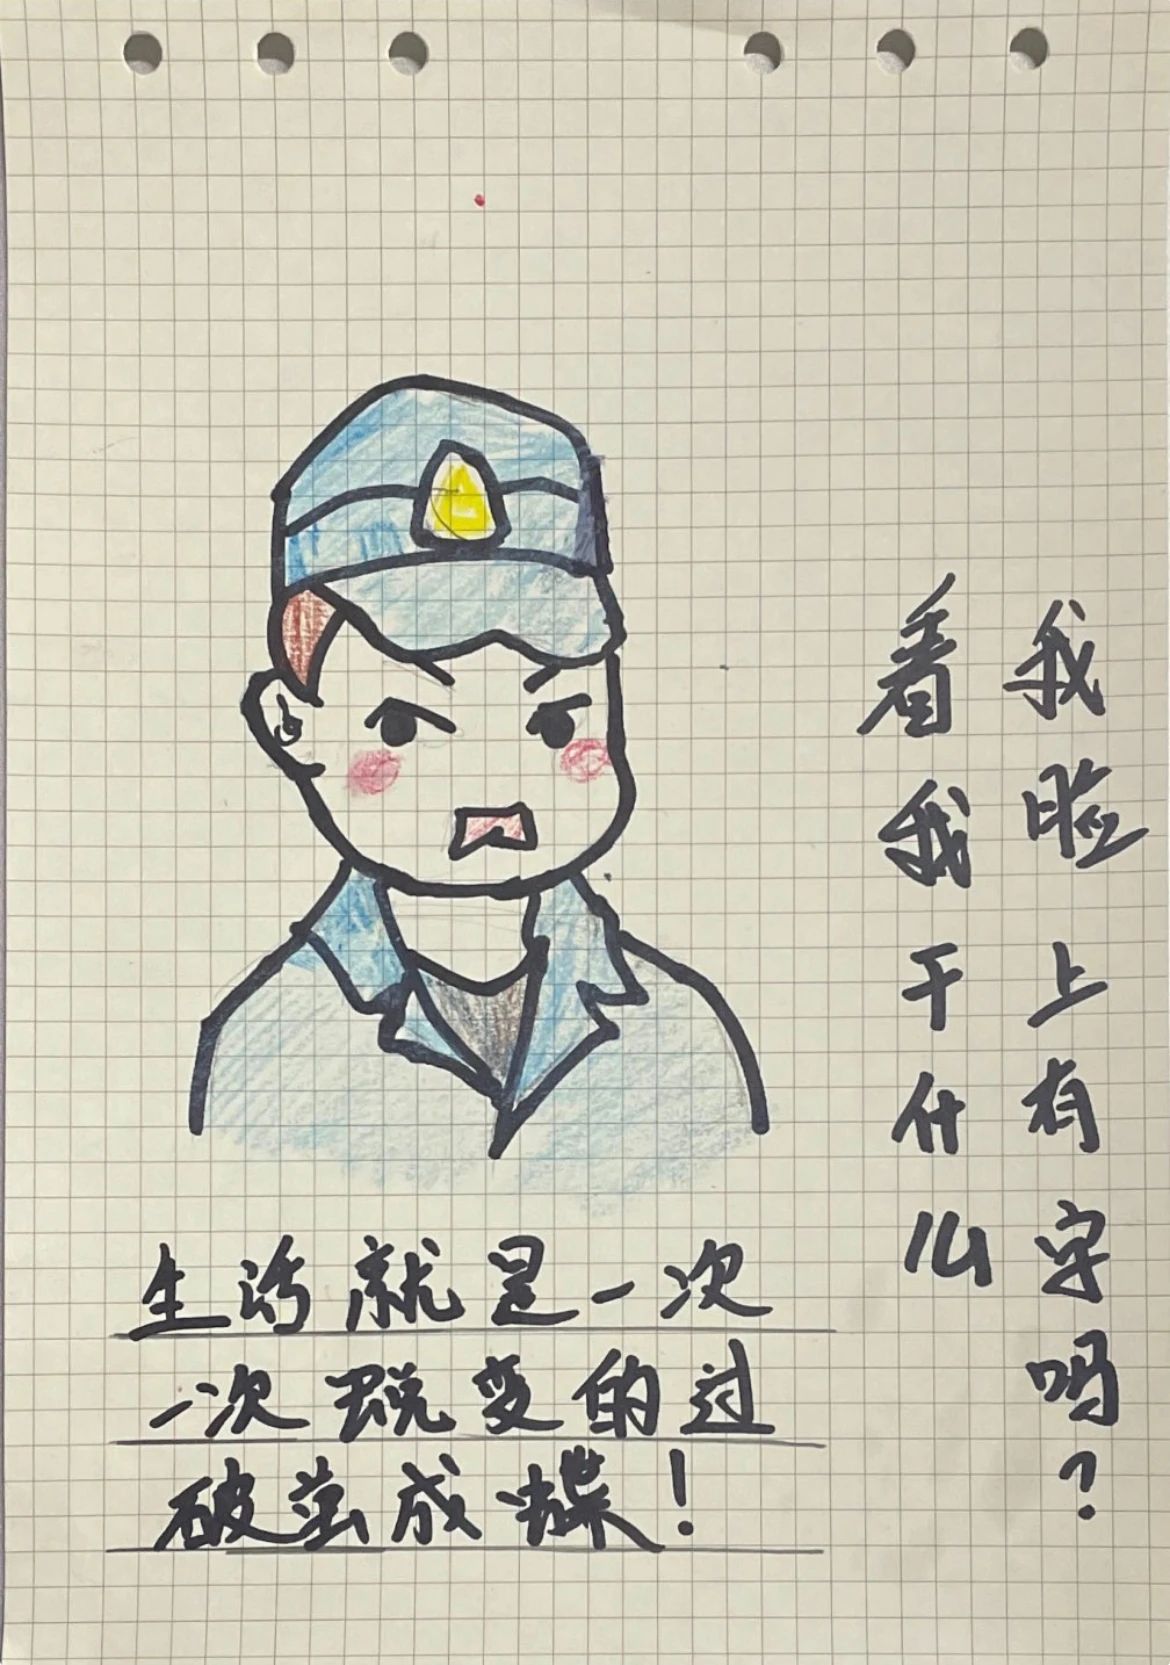 看我干什么
我脸上有字吗？
生活就是一次
一次蜕变的过
破茧成蝶！